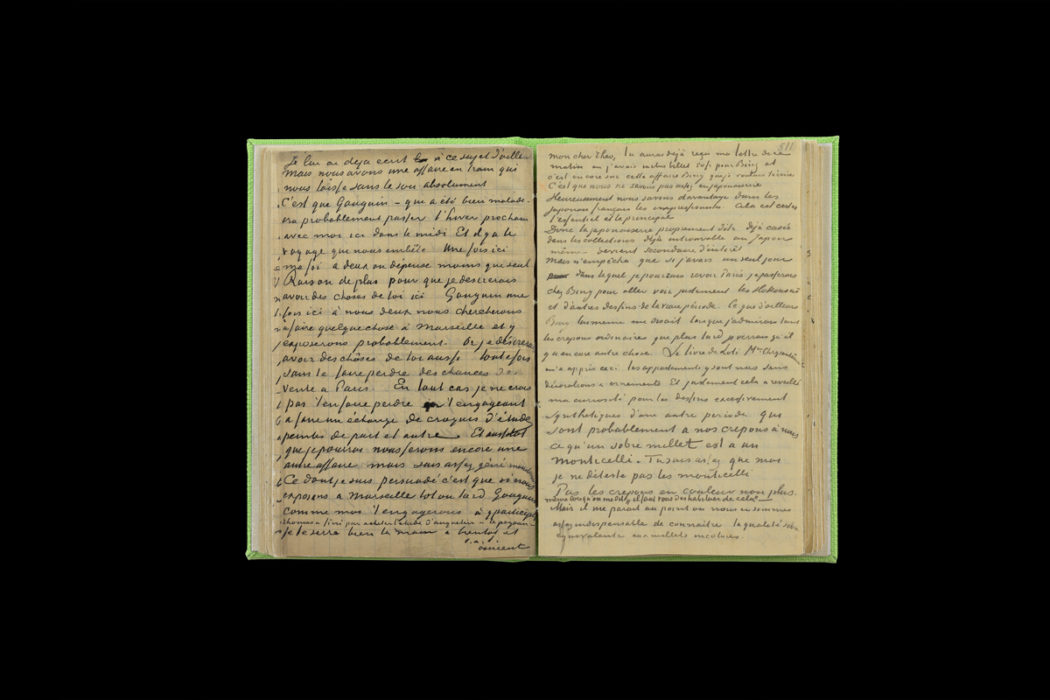 Je lui ai deja ecrit à ce sujet d'ailleurs
Mais nous avons une affaire en train qui
nous laisse sans le sou absolument
C'est que Gauguin – qui a été bien malade –
va probablement passer l'hiver prochain
avec moi ici dans le midi Et il y a le
voyage qui nous embête Une fois ici
ma foi à deux on dépense moins que seul
Raison de plus pour que je desirerais
avoir des choses de toi ici Gauguin une
fois ici à nous deux nous chercherons
à faire quelque chose à Marseille et y
exposerons probablement. Or je désirerais
avoir des choses de toi aussi toutefois
sans te faire perdre des chances de
vente à Paris. En tout cas je ne crois
pas t'en faire perdre en t'engageant
à faire un échange de croquis d'études
peintes de part et autre. Et aussitôt
que je pourrai nous ferons encore une
autre affaire mais suis assez gêné
Ce dont je suis persuadé c'est que si nous
exposons à Marseille tot ou tard Gauguin
comme moi t'engagerons à y participer
Thomas a fini par acheter l'étude d'Anquetin – le paysan –
je te serre bien la main à bientôt et
t. à t.
Vincent
511
mon cher Theo, Tu auras déjà reçu ma lettre de ce
matin où j'avais inclus billet 50 fr. pour Bing et
c'est encore sur cette affaire Bing que je voulais t'écrire
C'est que nous ne savons pas assez en japonaiserie
Heureusement nous savons davantage dans les
japonais français les impressionnistes. Cela est certes
l'essentiel et le principal
Donc la japonaiserie proprement dite déjà casée
dans les collections déjà introuvable au Japon
même devient secondaire d'intérêt
Mais n'empêche que si j'avais un seul jour
dans lequel je pourrais revoir Paris je passerais
chez Bing pour aller voir justement les Hokousaï
et d'autres dessins de la vraie période. Ce que d'ailleurs
Bing lui même me disait lorsque j'admirais tant
les crepons ordinaires que plus tard je verrais qu'il
y a encore autre chose. Le livre de Loti Mme Chrysanthème
m'a appris ceci: les appartements y sont nus sans
décorations & ornements. Et justement cela a reveillé
ma curiosité pour les dessins excessivement
synthetiques d'une autre periode. qui
sont probablement à nos crepons à nous
ce qu'un sobre millet est à un
monticelli. Tu sais assez que moi
je ne deteste pas les monticelli
Pas les crepons en couleur non plus.
même lorsqu'on me dit, il faut vous deshabituer de cela –
Mais il me parait au point où nous en sommes
assez indispensable de connaitre la qualité sobre
equivalente aux millets incolores.